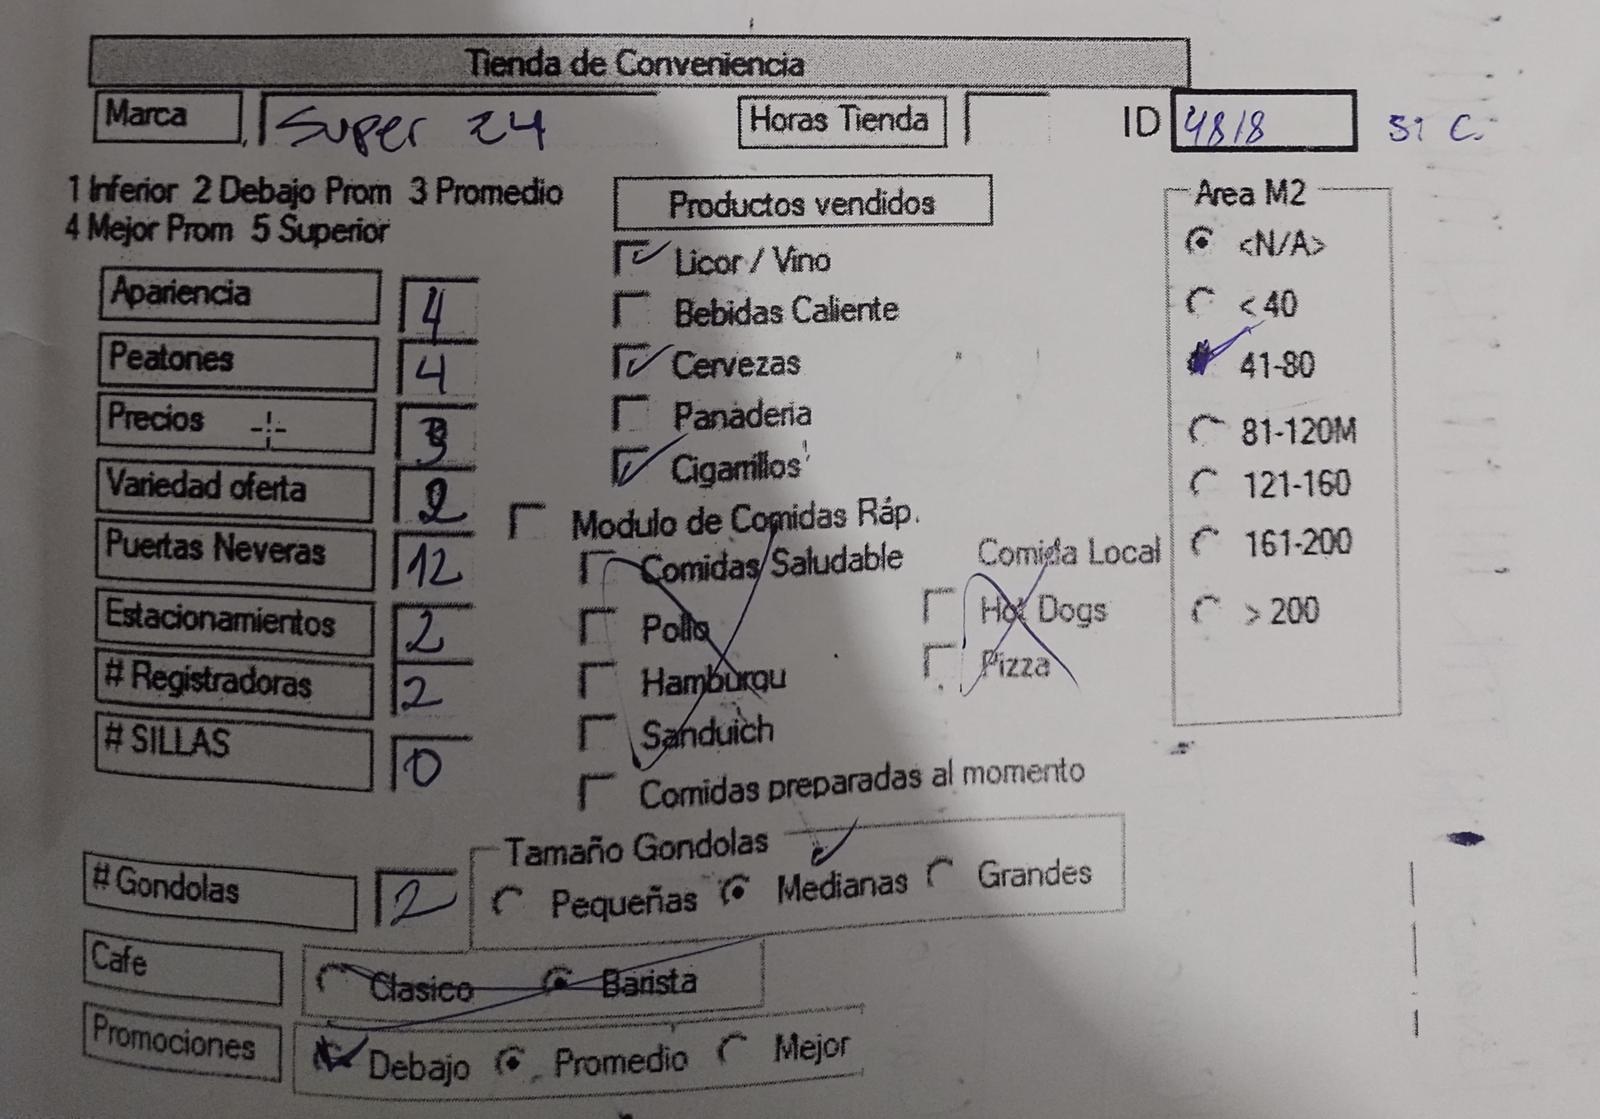 Tienda de Conveniencia
Marca Super 24 Horas Tienda ID 4818
1 Inferior 2 Debajo Prom 3 Promedio
4 Mejor Prom 5 Superior
Productos vendidos
Area M2
Licor / Vino
<N/A>
Apariencia 4
Bebidas Caliente
< 40
Peatones 4
Cervezas
41-80
Precios 3
Panaderia
81-120M
Variedad oferta 2
Cigarrillos
121-160
Modulo de Comidas Ráp.
Puertas Neveras 12
Comidas Saludable
Comida Local
161-200
Estacionamientos 2
Pollo
Hot Dogs
> 200
# Registradoras 2
Hamburqu
Pizza
# SILLAS 0
Sanduich
Comidas preparadas al momento
Tamaño Gondolas
# Gondolas 2
Pequeñas Medianas Grandes
Cafe
Clasico Barista
Promociones
Debajo Promedio Mejor